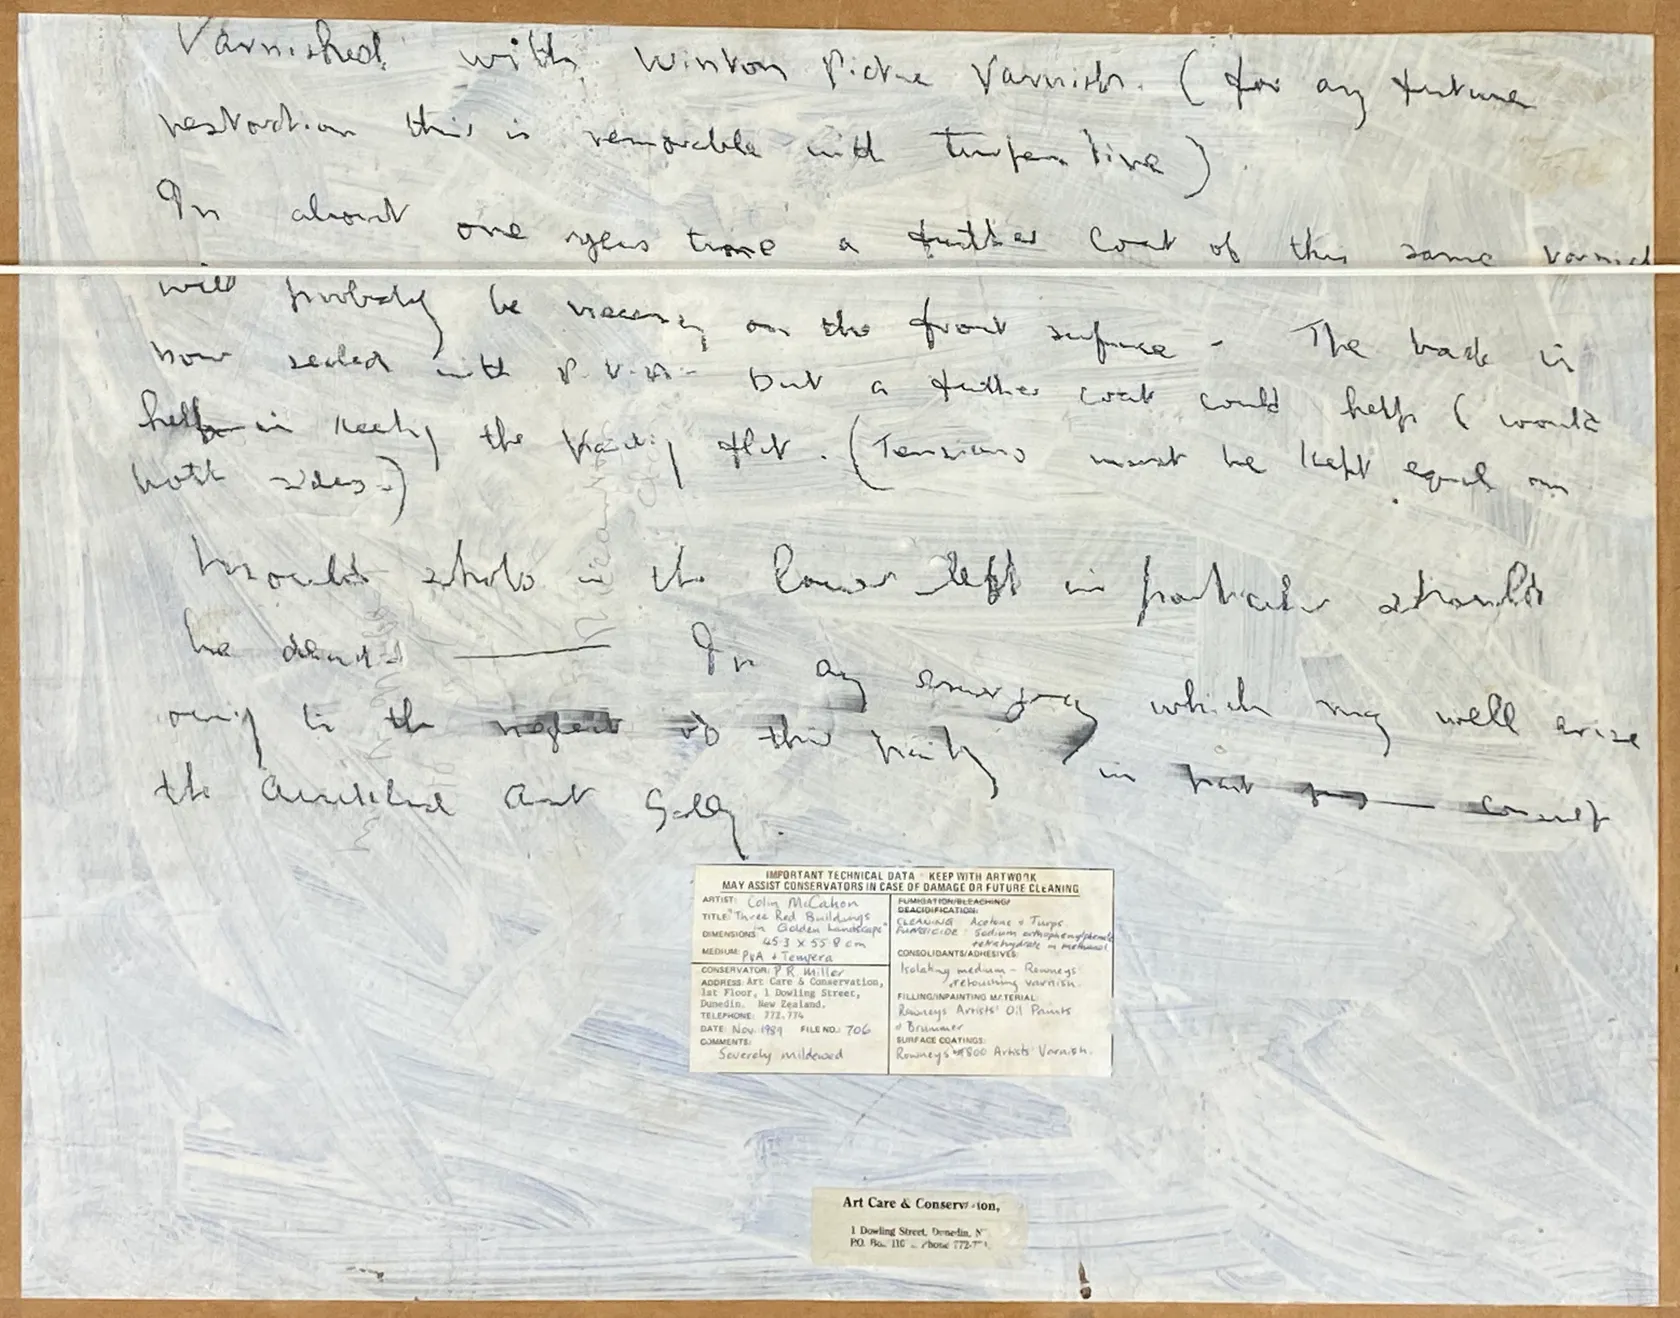 Varnished with Winton Picture Varnish. (for any future
restoration this is removable with turpentine)
In about one years time a further coat of this same varnish
will probably be necessary on the front surface - The back is
now sealed with P.V.A. - but a further coat could help ( would
help in keeping the painting flat. (Tensions must be kept equal on
both sides-)
Mould in the lower left in particular should
be
In any emergency which may well arise
owing to the neglect of this painting in part consult
the Auckland Art Gallery.
IMPORTANT TECHNICAL DATA - KEEP WITH ARTWORK
MAY ASSIST CONSERVATORS IN CASE OF DAMAGE OR FUTURE CLEANING
ARTIST: Colin McCahon
TITLE: "Three Red Buildings
in Golden Landscape"
DIMENSIONS: 45.3 X 55.8 cm
MEDIUM: PVA + Tempera
CONSERVATOR: P.R. Miller
ADDRESS: Art Care & Conservation,
1st Floor, 1 Dowling Street,
Dunedin. New Zealand.
TELEPHONE: 772.774
DATE: Nov. 1989 FILE NO.: 706
COMMENTS:
Severely mildewed
FUMIGATION/BLEACHING/
DEACIDIFICATION:
CLEANING Acetone + Turps.
FUNGICIDE: Sodium orthophenylphenate
tetrahydrate in methanol
CONSOLIDANTS/ADHESIVES:
Isolating medium - Rowneys
retouching varnish.
FILLING/INPAINTING MATERIAL:
Rowneys Artists' Oil Paints
+ Brummer
SURFACE COATINGS:
Rowneys 800 Artists' Varnish.
Art Care & Conservation,
1 Dowling Street, Dunedin, N
P.O. Box Phone